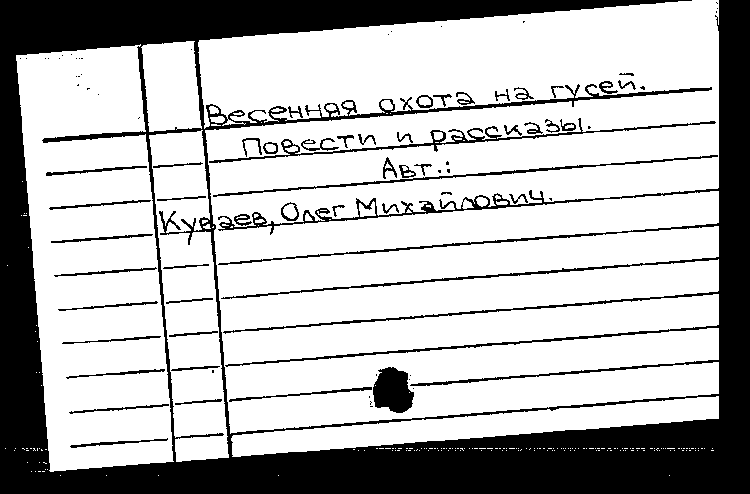 Весенняя охота на гусей.
Повести и рассказы.
Авт.:
Куваев, Олег Михайлович.